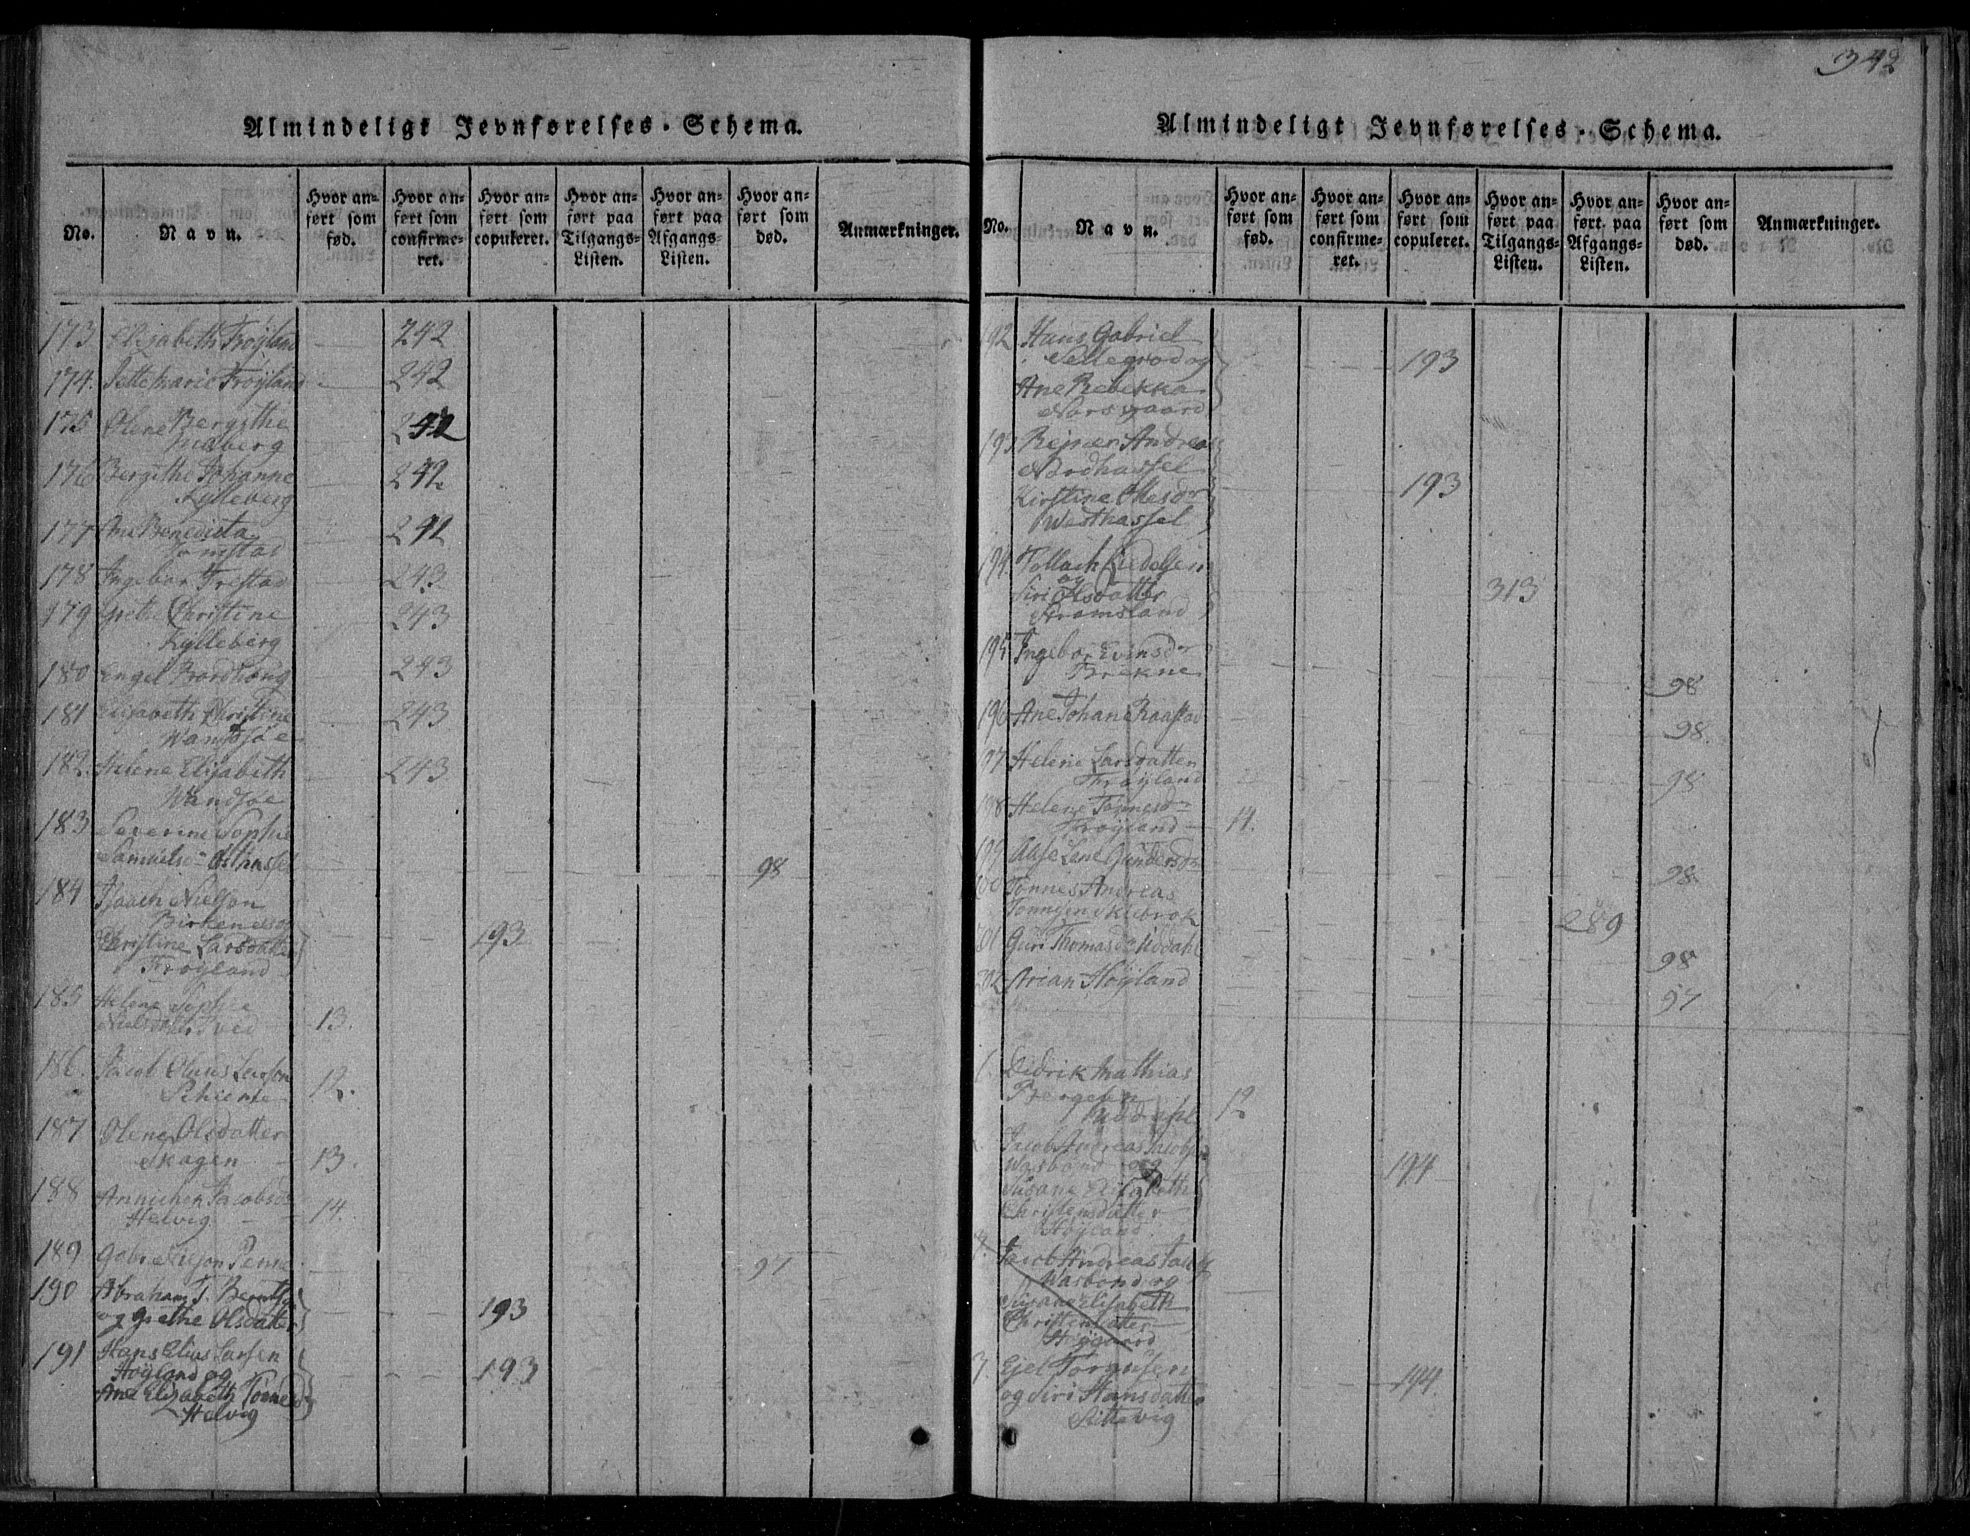 342
Almindeligt Jevnførelses-Schema.
No. Navn. Hvor anført som fød. Hvor anført som confirmeret. Hvor anført som copuleret. Hvor anført paa Tilgangs-Listen. Hvor anført paa Afgangs-Listen. Hvor anført som død. Anmærkninger.
173 Elisabeth Frøyland 242
174. Jette Marie Frøyland 242
175 Olene Bergithe 242
176 Bergithe Johanne 242
Kylleberg
177 Ane Benedicta 242
Tomstad
178 Ingebor Frestad 243
179 Grethe Christine 243
Kylleberg
180 Engel Brardhoug 243
181 Elisabeth Christine 243
Wandsøe
182. Helene Elisabeth 243
Wandsøe
183 Severine Sophie
Samuelsd Østhassel 98
184 Isaach Nielson
Birkenes og
Christine Larsdatter 193
Frøyland
185 Helene Sophie
Nielsdatter Tved 13.
186. Jacob Oluus Larson 12.
187 Olene Olsdatter
Skagen 13.
188 Annichen Jacobsd
Helvig 14.
189 Gabriel Penne 97
190 Abraham T. Berntsen
og Grethe Olsdatter 193
191 Hans Elias Larsen
Høyland og 193
Ane Elizabeth Tønnesd
Helvig
Almindeligt Jevnførelses-Schema.
No. Navn. Hvor anført som fød. Hvor anført som confirmeret. Hvor anført som copuleret. Hvor anført paa Tilgangs-Listen. Hvor anført paa Afgangs-Listen. Hvor anført som død. Anmærkninger.
192 Hans Gabriel
og 193
Ane Rebekka
193 Rejnær Andreas
Nordhassel
Kirstine Olesdr 193
Westhassel
194. Tollach
og
Siri Olsdatter 313
Stromsland
195 Ingebor Evensdr
Brekne 98
196 Ane Johane Raastad 98.
197 Helene Larsdatter
Frøyland 98
198 Helene Tønnesd
Frøyland 14.
199 Aase Lene Gundersdr 98.
200 Tønnes Andreas
Tønnesen 289
201 Guri Thomasd 98
202 Arian Høyland 97
1. Didrik Mathias
Bergesen 12
Jacob Andreas Jacobsen
Wasbond og 194
Susane Elisabeth
Christensdatter
Høyland
Jacob Andreas
Wasbond og
Susane Elisabeth
Christensdatter
3. Ejel Torgusen
og Siri Hansdatter 194.
Sittevig